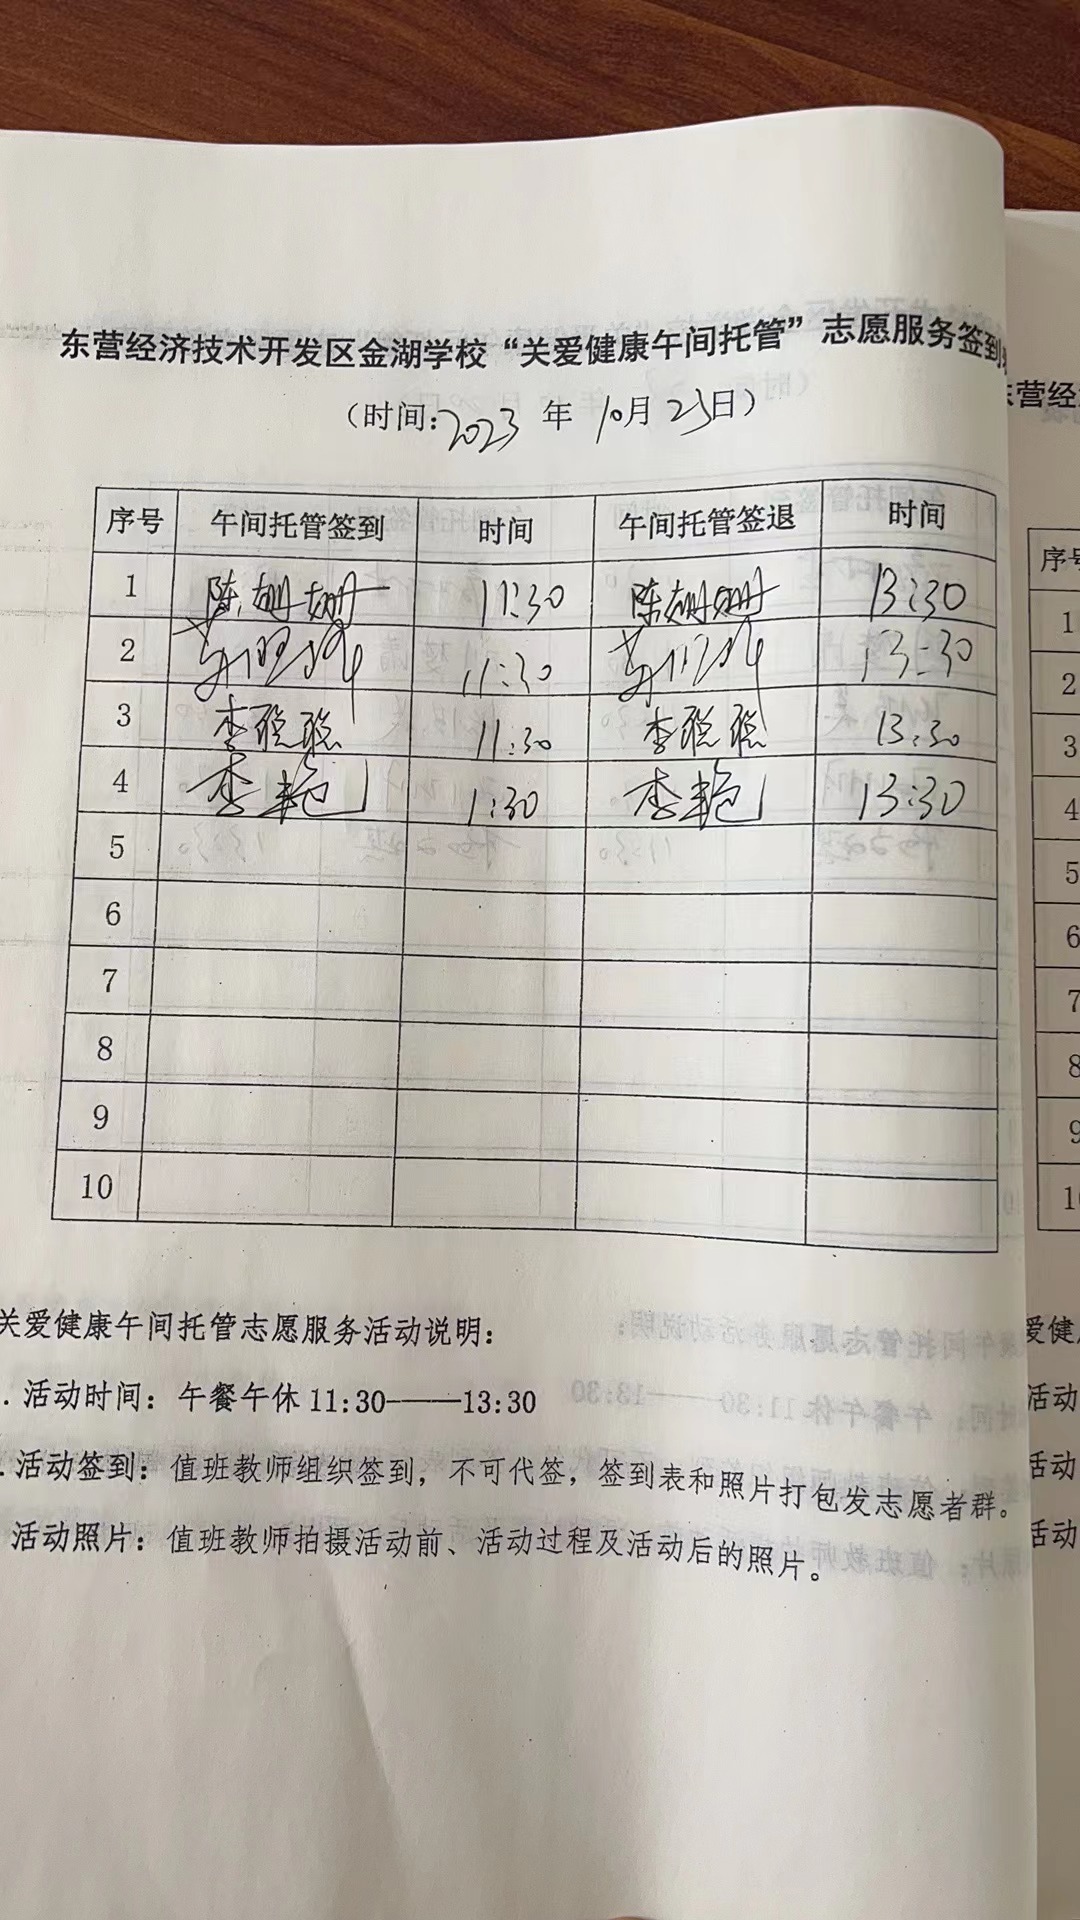 东营经济技术开发区金湖学校“关爱健康午间托管”志愿服务签到
（时间：2023年10月23日）
序号 午间托管签到 时间 午间托管签退 时间
1 陈姗姗 11:30 陈姗姗 13:30
2 11:30 13:30
3 李聪聪 11:30 李聪聪 13:30
4 李艳 1:30 李艳 13:30
5
6
7
8
9
10
关爱健康午间托管志愿服务活动说明：
. 活动时间：午餐午休 11:30——13:30
. 活动签到：值班教师组织签到，不可代签，签到表和照片打包发志愿者群。
活动照片：值班教师拍摄活动前、活动过程及活动后的照片。
东营经
序号
1
2
3
4
5
6
7
8
9
1
爱健
活动
活动
活动